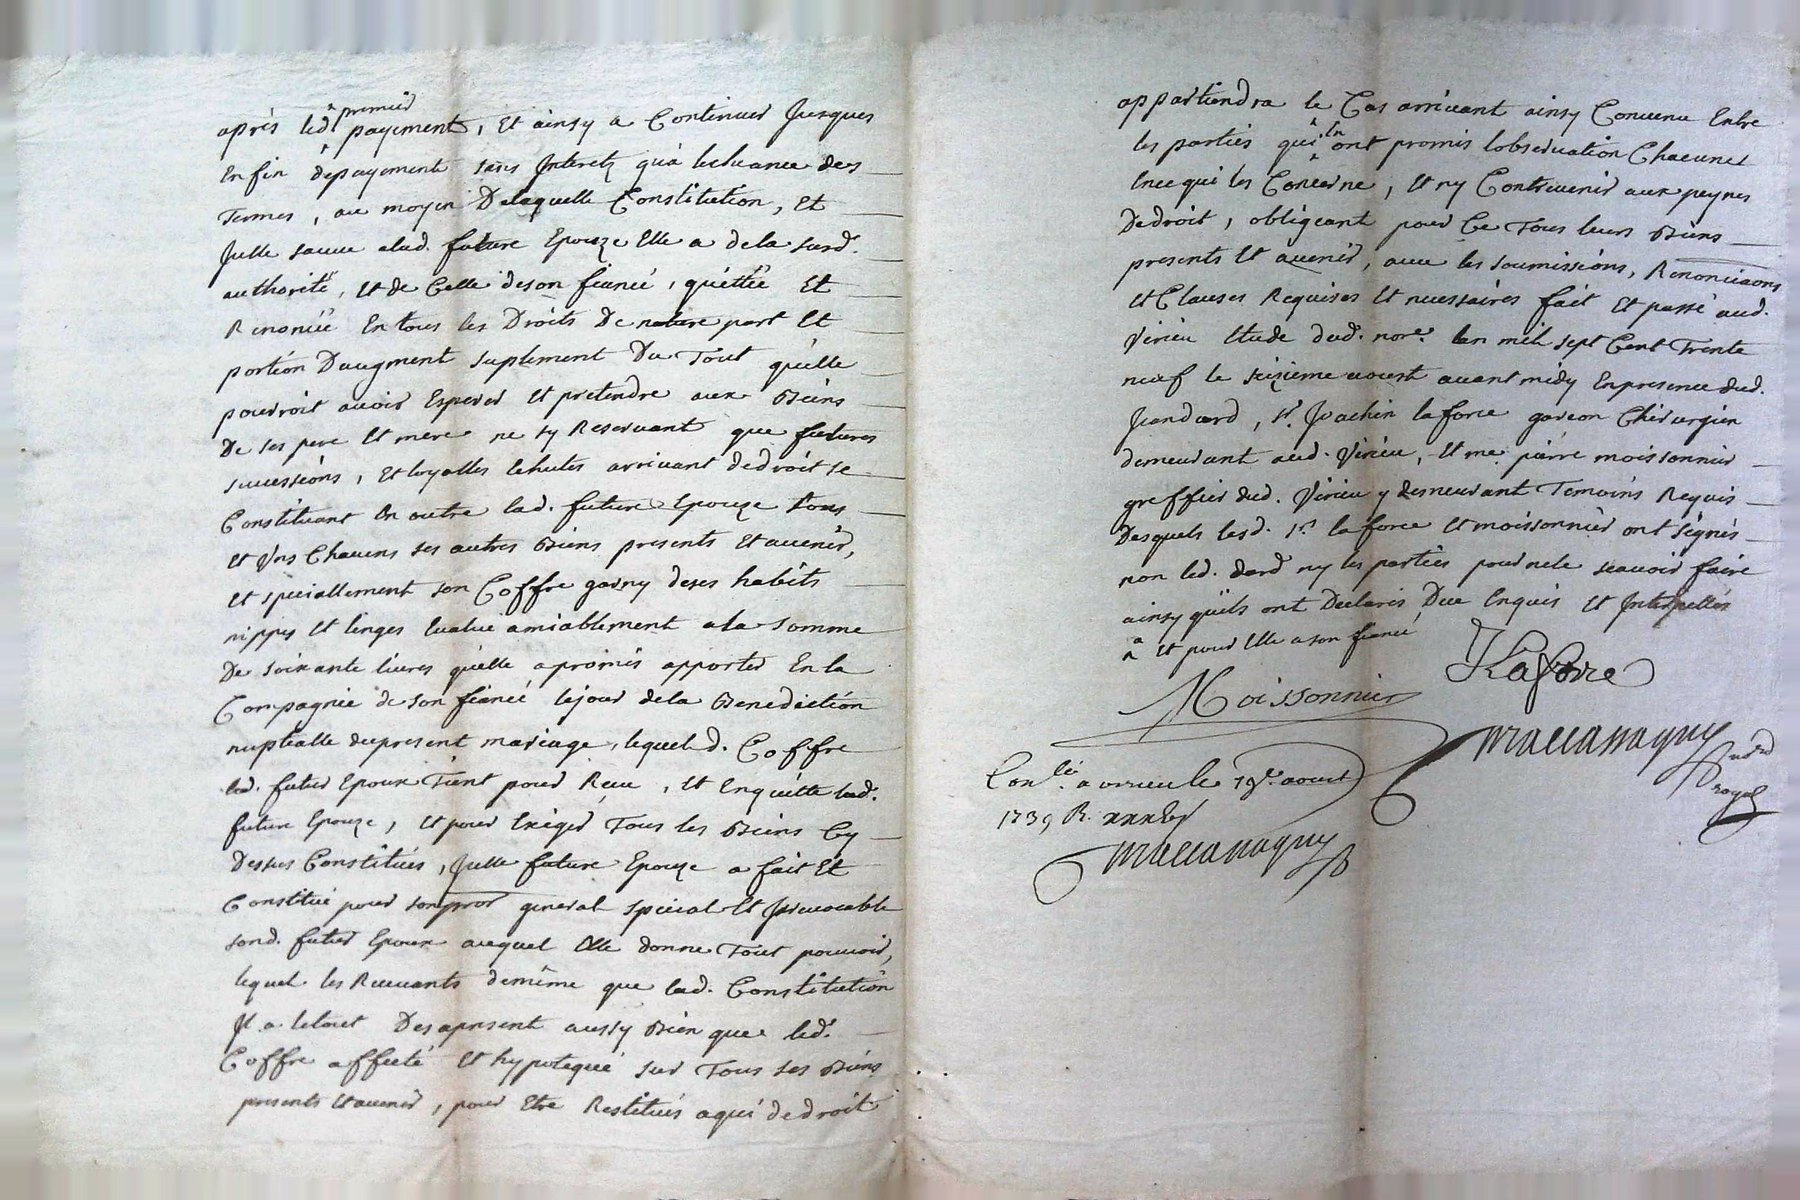 après led. premier payement, Et ainsy a Continuer Jusques
En fin depayement sans Interetz qu'a lecheance des
Termes, au moyen Delaquelle Constitution, Et
Jcelle sauve alad. future Epouze Elle a dela surd.
authorité, Et de Celle deson fiancé, quittée Et
Renoncée En tous les Droits De nature part Et
portion Daugment suplement Du Tout quelle
pourroit avoir Esperer Et pretendre aux Biens
De ses pere Et mere ne sy Reservant que futures
successions, Et loyalles Echutes arrivant dedroit se
Constituant En outre lad. future Epouze Tous
Et Uns Chacuns ses autres Biens presents Et avenir,
Et speciallement son Coffre garny deses habits
nippes Et linges Evalué amiablement ala Somme
De soixante livres quelle apromis apporter En la
Compagnie de son fiancé lejour dela Benediction
nuptialle dupresent mariage, lequel d. Coffre
led. futur Epoux Tient pour Receu, Et Enquitte lad.
future Epouze, Et pour Exiger Tous les Biens Cy
Dessus Constitués, Jcelle future Epouze a fait Et
Constitué pour sonpror general special Et Jrrevocable
sond. futur Epoux auquel Elle donne Tout pouvoir,
lequel les Recevants demême que lad. Constitution
Jl a Des apresent aussy Bien que led.
Coffre affecté Et hypotequé sur Tous ses Biens
presents Et avenir, pour Etre Restitués aqui dedroit
appartiendra le Cas arrivant ainsy Convenu Entre
les parties qui En ont promis lobservation Chacunes
Encequi les Concerne, Et ny Contrevenir aux peynes
Dedroit, obligeant pour Ce Tous leurs Biens
presents Et avenir, avec les soumissions, Renonciaons
Et Clauses Requises Et necessaires fait Et passé aud.
Virieu Etude dud. nore. Lan mil sept Cent Trente
neuf le seizieme aoust avant midy Enpresence dud.
Jeandard, sr. Joachin laforce garcon Chirurgien
demeurant aud. Virieu, Et me. pierre moissonnier
greffier dud. Virieu y demeurant Temoins Requis
Desquels lesd. sr. laforce Et moissonnier ont signés
non led. dard ny les parties pour nele scavoir faire
ainsy quils ont Declarés Due Enquis Et Interpellés
a Et pour Elle a son fiancé
JLaforce
Moissonnier
Maccanaguy
royal
Conlé. a virieu le 19e. aoust
1739 R.
Maccanaguy